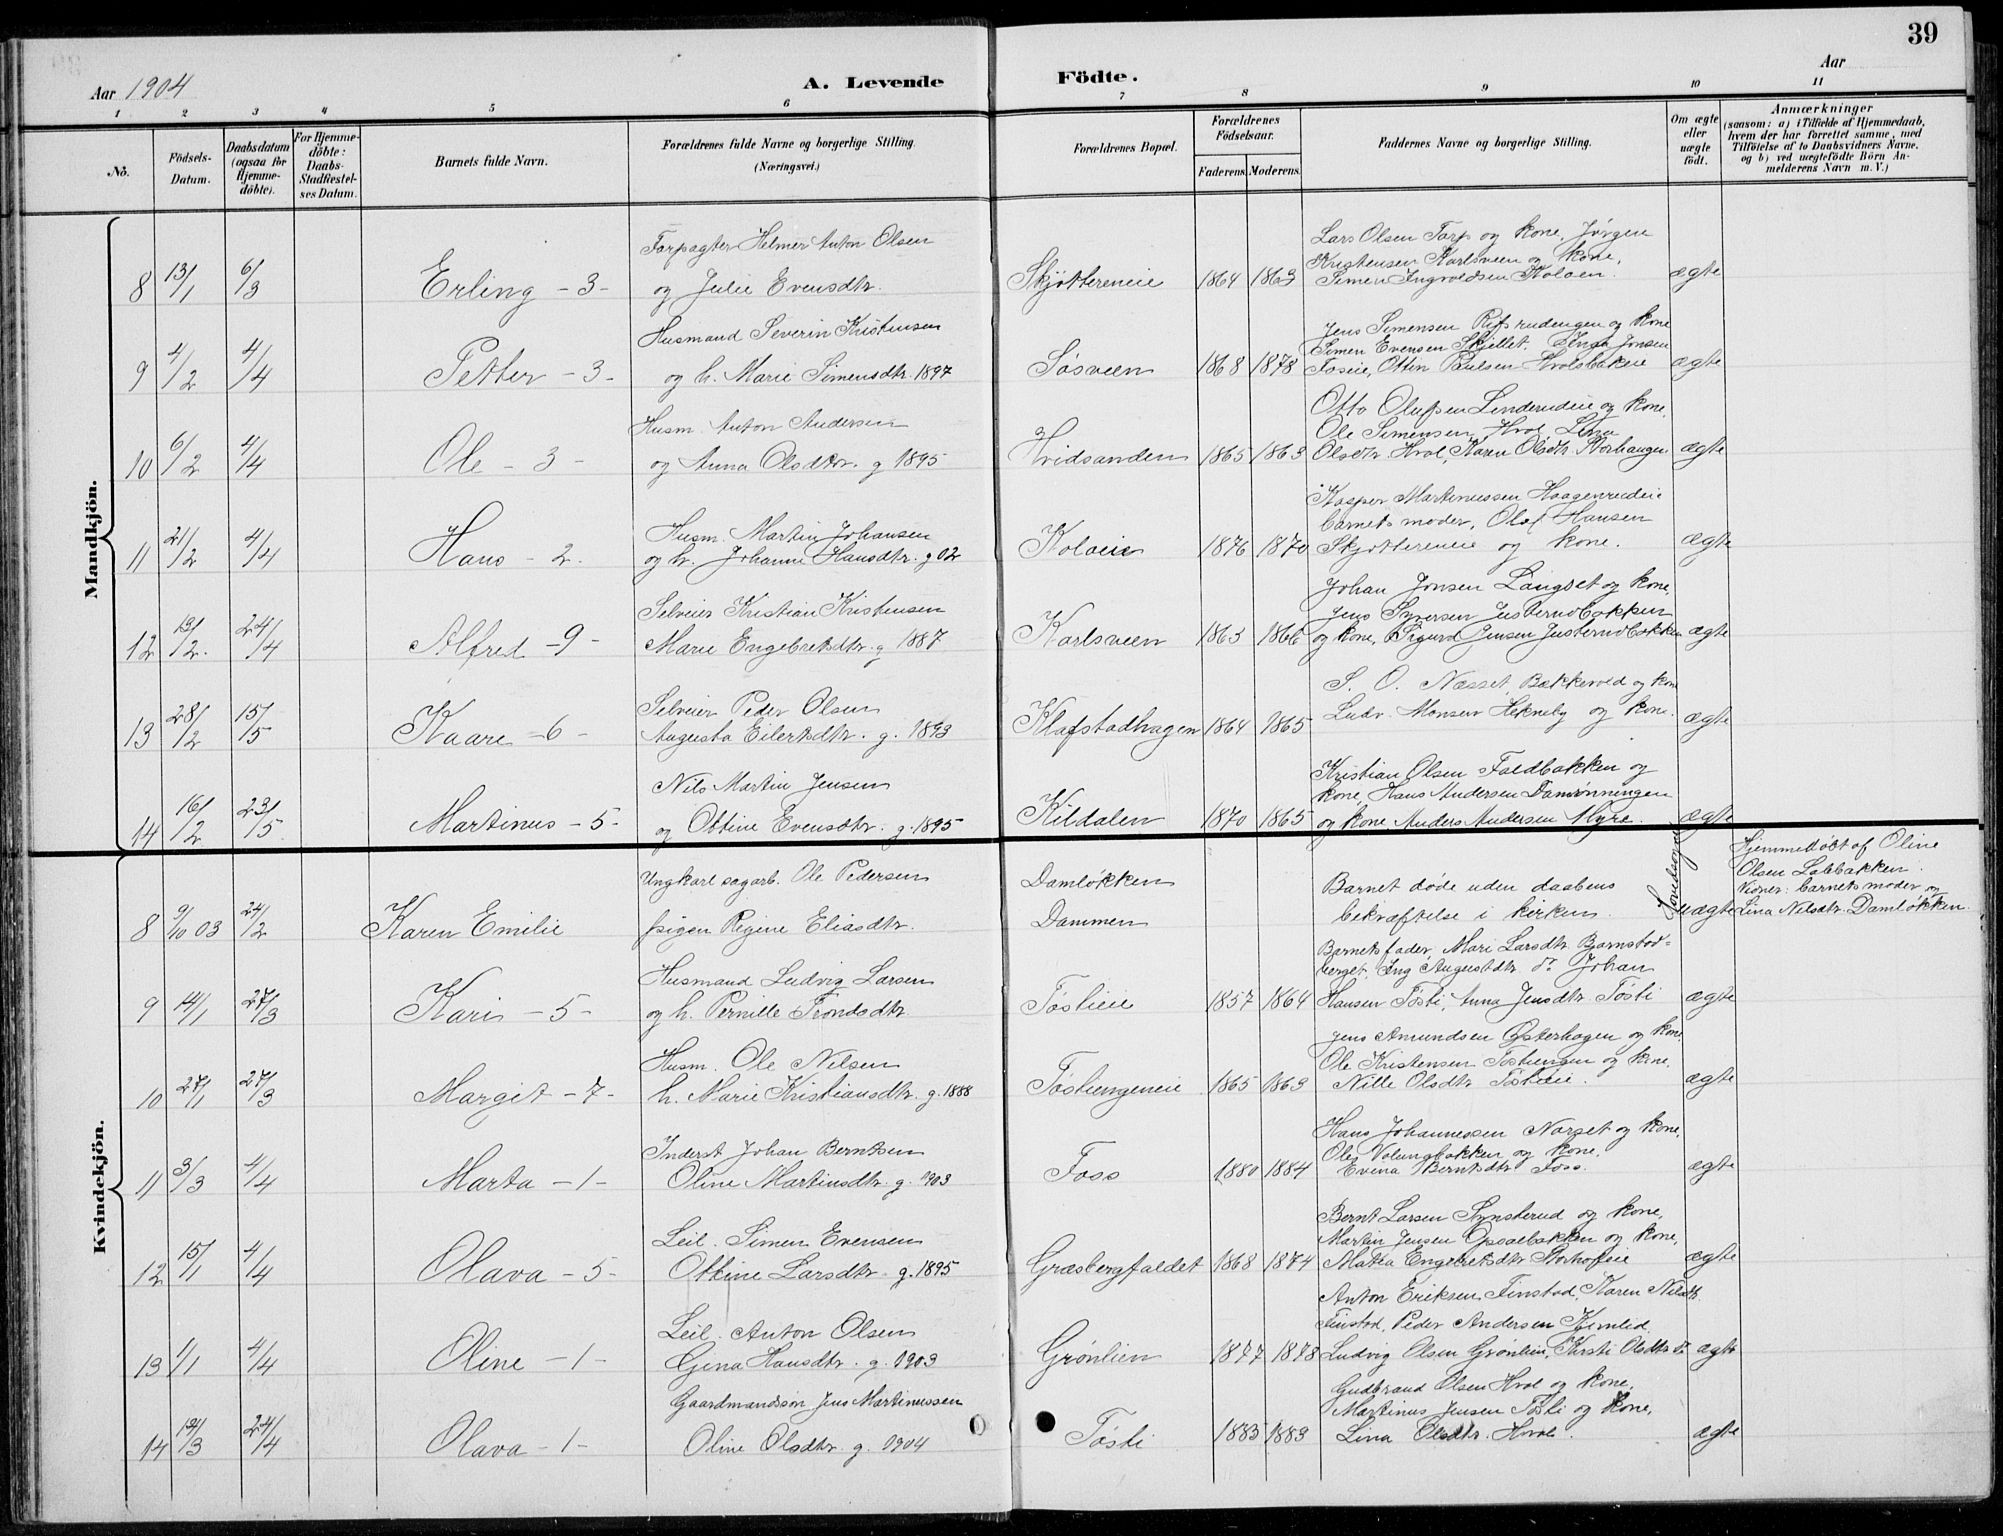 39
Aar 1904
A. Levende Födte.
Aar
1 2 3 4 5 6 7 8 9 10 11
No.
Födsels-Datum.
Daabsdatum (ogsaa for Hjemme-döbte).
For Hjemme-döbte: Daabs-Stadfæstel-ses Datum.
Barnets fulde Navn.
Forældrenes fulde Navne og borgerlige Stilling.
(Næringsvei.)
Forældrenes Bopæl.
Forældrenes Födselsaar.
Faderens. Moderens.
Faddernes Navne og borgerlige Stilling.
Om ægte eller uægte födt.
Anmærkninger
(saasom: a) i Tilfælde af Hjemmedaab, hvem der har forrettet samme, med Tilföielse af to Daabsvidners Navne, og b) ved uægtefödte Börn Anmelderens Navn m. V.)
Mandkjön.
Forpagter Helmer Anton Olsen
Lars Olsen Tarp og kone, Jørgen
Kristensen Karlsveen og kone,
8 13/1 6/3 Erling - 3 - og Julie Evensdtr. Skjøttereneie 1864 1863 Simen Ingvoldsen Koloen. ægte
Husmand Severin Kristensen
Jens Simensen Rifsrudengen og kone
Simen Evensen Skjellet. Inga Jonsen
9 4/2 4/4 Petter - 3 - og h. Marie Simensdtr. 1897 Søsveen 1868 1878 Foseie, Ottin Paulsen Hvolsbakeie ægte
Husm. Anton Andersen
Otto Olufsen Linderudeie og kone,
Ole Simensen Hvol, Lina
10 6/2 4/4 Ole - 3 - og Anna Olsdtr. g 1895 Hvidsanden 1865 1863 Olsdtr. Hvol, Karen Olsdtr. Storhaugen ægte
Husm. Martin Johansen
Kasper Martinussen Haagenrudeie
barnets moder, Olaf Hansen
11 21/2 4/4 Hans - 2. og h. Johanne Hansdtr. g 02 Koloeie 1876 1870 Skjøttereneie og kone. ægte
Selveier Kristian Kristensen
Johan Jonsen Langset og kone,
Jens Syversen Justernobakken
12 19/2. 24/4 Alfred - 9 - Marie Engebretsdtr. g 1887 Karlsveen 1863 1866 og kone, Sigurd Jensen Justernobakken ægte
Selveier Peder Olsen
S. O. Næsset, Bækkevold og kone
13 28/2 15/5 Kaare - 6 - Augusta Eilertsdtr. g. 1893 Klafstadhagen 1864 1865 Ludv. Monsen Hekneby og kone. ægte
Nils Martin Jensen
Kristian Olsen Faldbakken og
kone, Hans Andersen Damrønningen
14 16/2 23/5. Martinus - 5 - og Ottine Evensdtr. g. 1895 Kildalen 1870 1865 og kone, Anders Andersen Myre. ægte
Kvindekjön.
Ungkarl sagarb. Ole Pedersen Damløkken
Barnet døde uden daabens
Hjemmedøbt af Oline
Olsen Labbakken.
Vidner: barnets moder og
8 9/10 03 24/2 Karen Emilie pigen Regine Eliasdtr. Dammen bekræftelse i kirken. uægte Lina Nilsdtr. Damløkken.
Husmand Ludvig Larsen
Barnets fader, Mari Larsdtr. Bjørnstad-
berget, Ing Augustdtr. do Johan
9 14/1 27/3 Karis - 5 - og h. Pernille Trondsdtr. Tøstieie 1857 1864 Hansen Tøsti, Anna Jensdtr. Tøsti ægte
Husm. Ole Nilsen
Jens Amundsen Østerhagen og kone,
Ole Kristensen Tøstiengen og kone,
10 27/1 27/3 Margit - 7 - h. Marie Kristiansdtr. g. 1888 Tøstiengeneie 1865 1863 Nille Olsdtr. Tøstieie. ægte
Inderst Johan Berntsen
Hans Johannessen Narset og kone,
Ole Volungbakken og kone,
11 3/3 4/4 Marta - 1 - Oline Martinsdtr. g. 1903 Foss 1880 1884 Evina Berntsdtr. Foss. ægte
Leil. Simen Evensen
Bernt Larsen Synsterud og kone,
Martin Jensen Opsalbakken og kone,
12 15/1 4/4 Olava - 5 - Ottine Larsdtr. g. 1895 Græsbergfaldet 1868 1874 Matea Engebretsdtr. Storhofeie ægte
Leil. Anton Olsen
Anton Eriksen Finstad, Karen Nilsdtr.
Finstad, Peder Andersen Kjenlid,
13 1/1 4/4 Oline - 1 - Gina Hansdtr. g. 1903 Grønlien 1877 1878 Ludvig Olsen Grønlien, Kirsti Olsdtr. do ægte
Gaardmandssøn Jens Martinussen
Gudbrand Olsen Hvol og kone,
Martinus Jensen Tøsti og kone,
14 14/3 24/4 Olava - 1 - Oline Olsdtr. g. 1904 Tøsti 1883 1883 Lina Olsdtr. Hvol. ægte